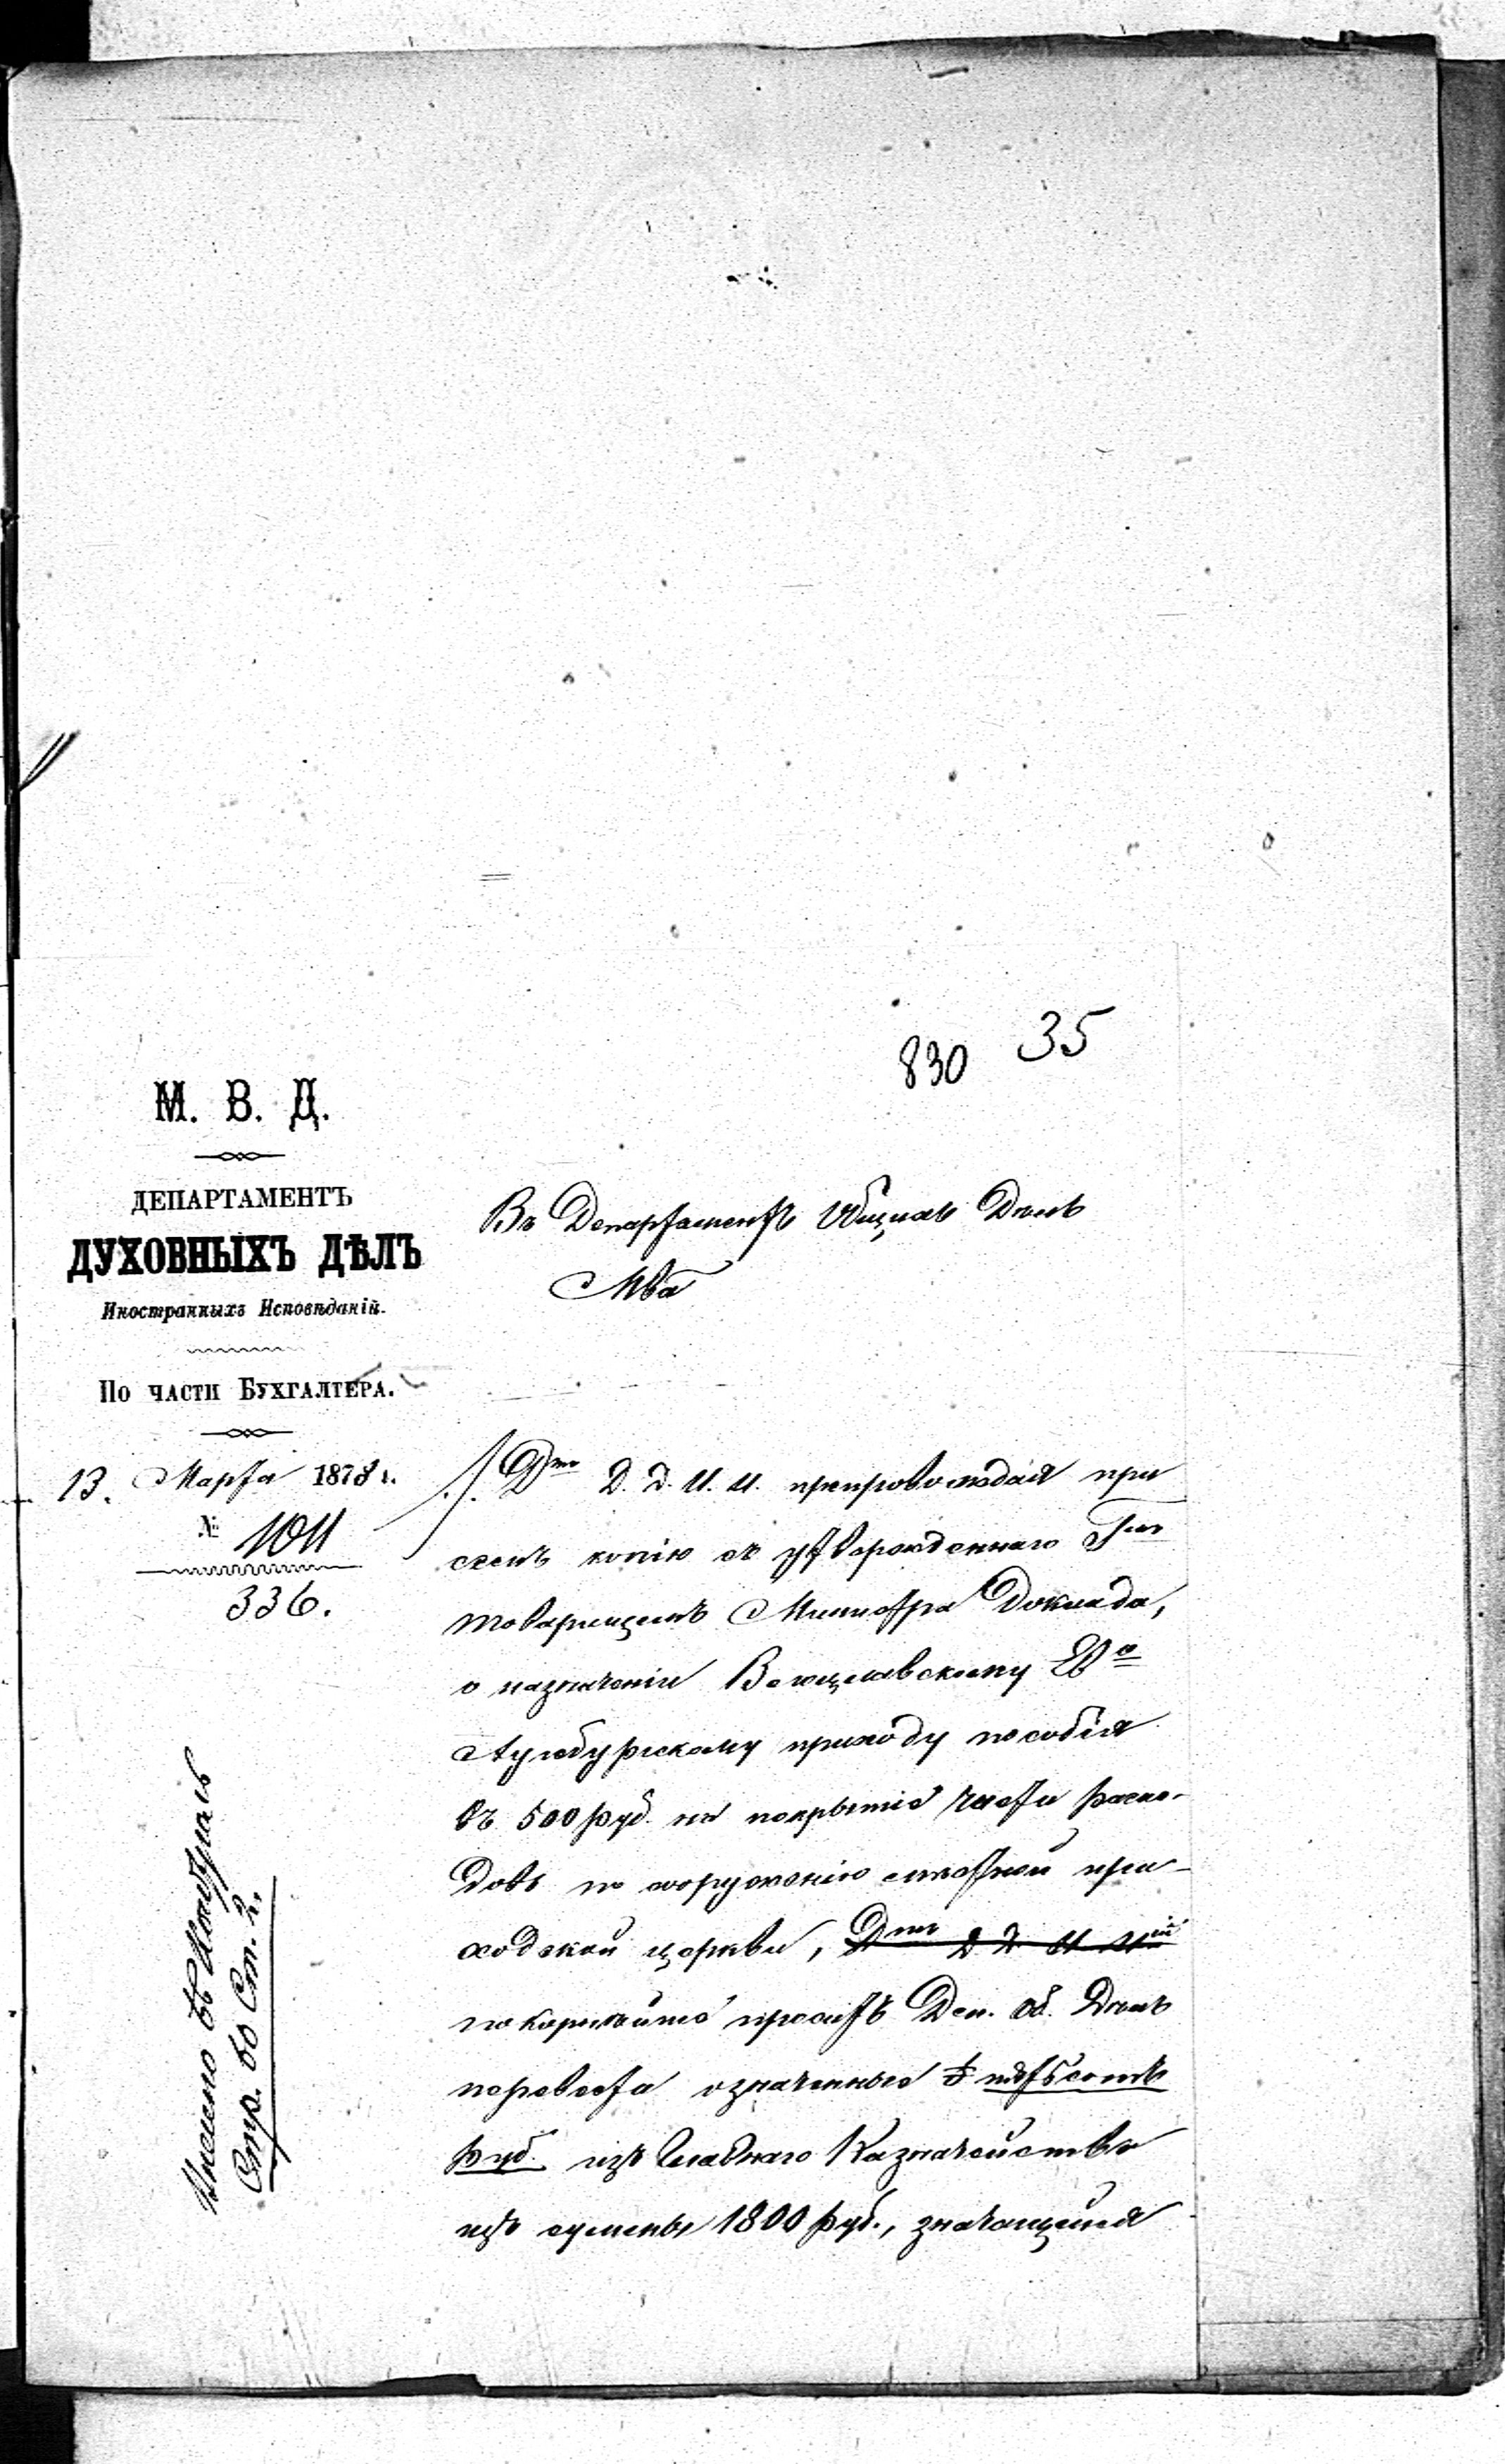 830 35
М. В. Д.
ДЕПАРТАМЕНТЪ
ДУХОВНЫХЪ ДѢЛЪ
Иностранныхъ Исповѣданій.
По части Бухгалтера.
13. Марта 1878 г.
№ 1011
336.
Въ Департаментъ Общихъ Дѣлъ
Мва
Дтъ Д. Д. И. И. препровождая при
семъ копію съ утвержденнаго Гмъ
товарищемъ Министра Доклада,
о назначеніи Ев°
Аугсбургскому приходу пособія
въ 500 руб. на покрытіе части расхо-
довъ по сооруженію приходской при-
ходской церкви, Дтъ Д Д И Ий
покорнѣйше проситъ Деп. Об. Дѣлъ
перевести означенные пятьсотъ
руб. изъ Главнаго Казначейства
изъ суммы 1800 руб., значащейся
Стр. 60 Ст. 2.